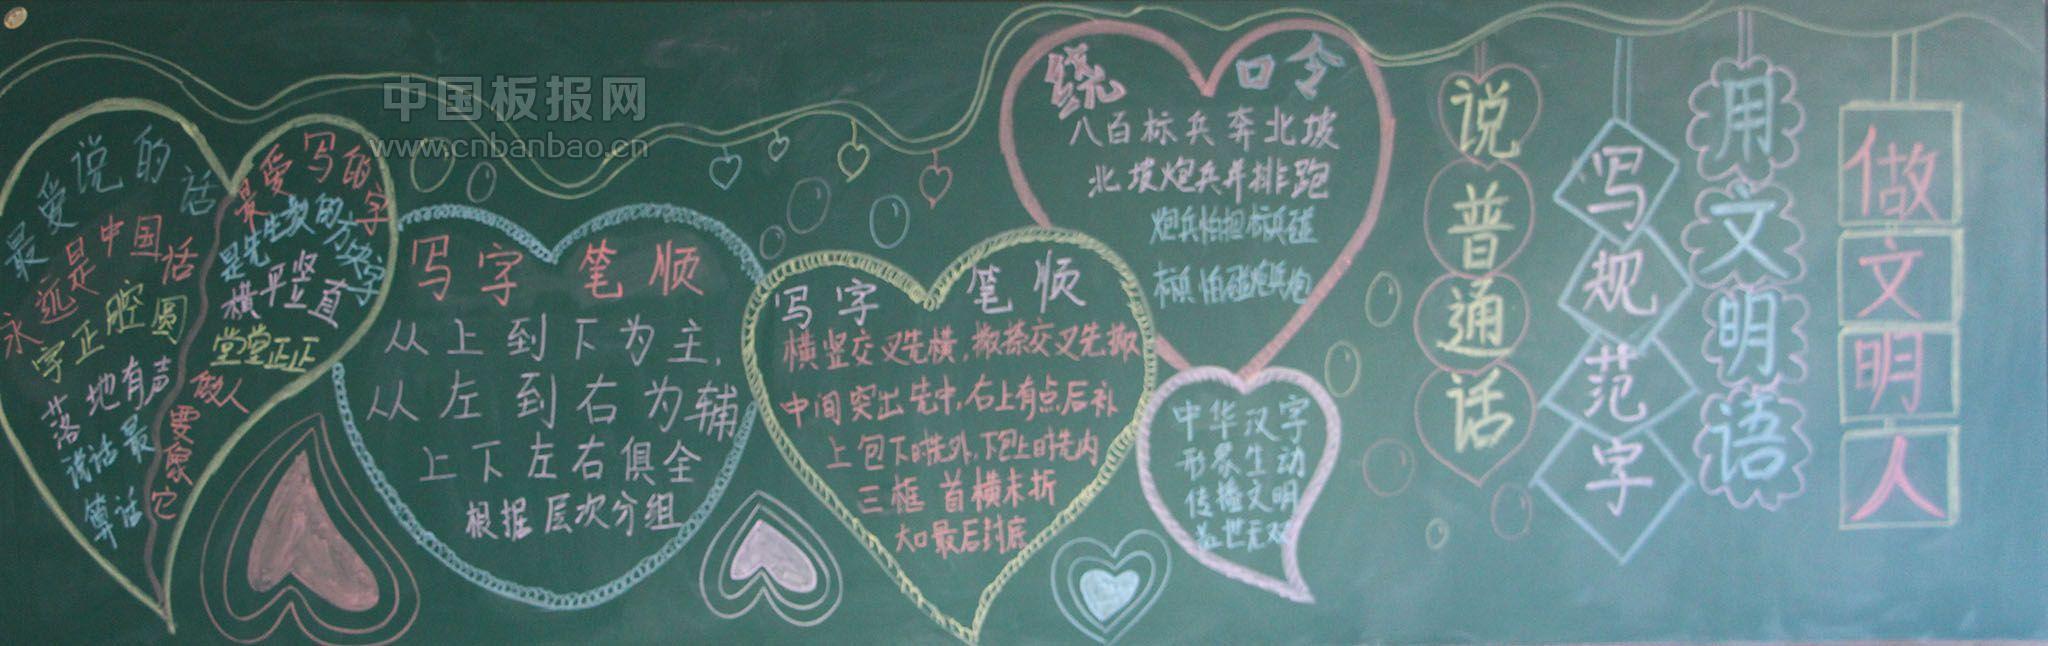 中国板报网
www.cnbanbao.cn
最爱说的话
永远是中国话
字正腔圆
落地有声
说话最
算话
最爱写的字
是先生教的方块字
横平竖直
堂堂正正
做人
要象它
写字 笔顺
从上到下为主,
从左到右为辅
上下左右俱全
根据层次分组
写字 笔顺
横竖交叉先横,撇捺交叉先撇
中间突出先中,右上有点后补
上包下时先外,下包上时先内
三框首横末折
大口最后封底
绕口令
八百标兵奔北坡
北坡炮兵并排跑
炮兵怕把标兵碰
标兵怕碰炮兵炮
中华汉字
形象生动
传播文明
盖世无双
说普通话
写规范字
用文明语
做文明人